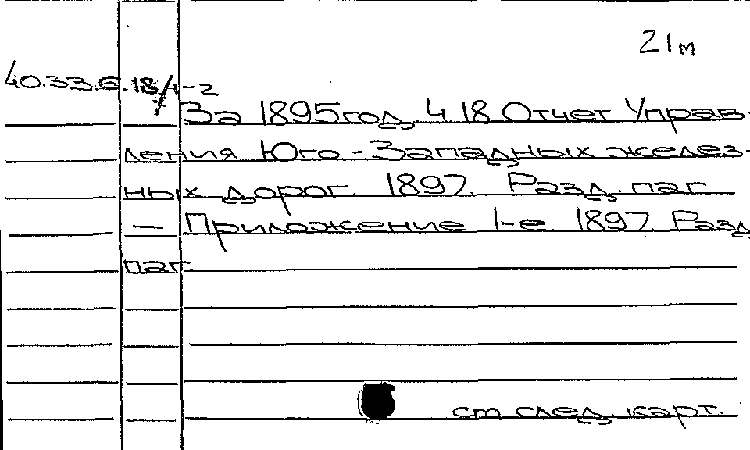 21м
40.33.6.18/1-2
За 1895год. Ч 18 Отчет Управ-
ления Юго-Западных желез-
ных дорог. 1897. Разд. паг
— Приложение 1-е 1897. Разд.
паг
см след. карт.